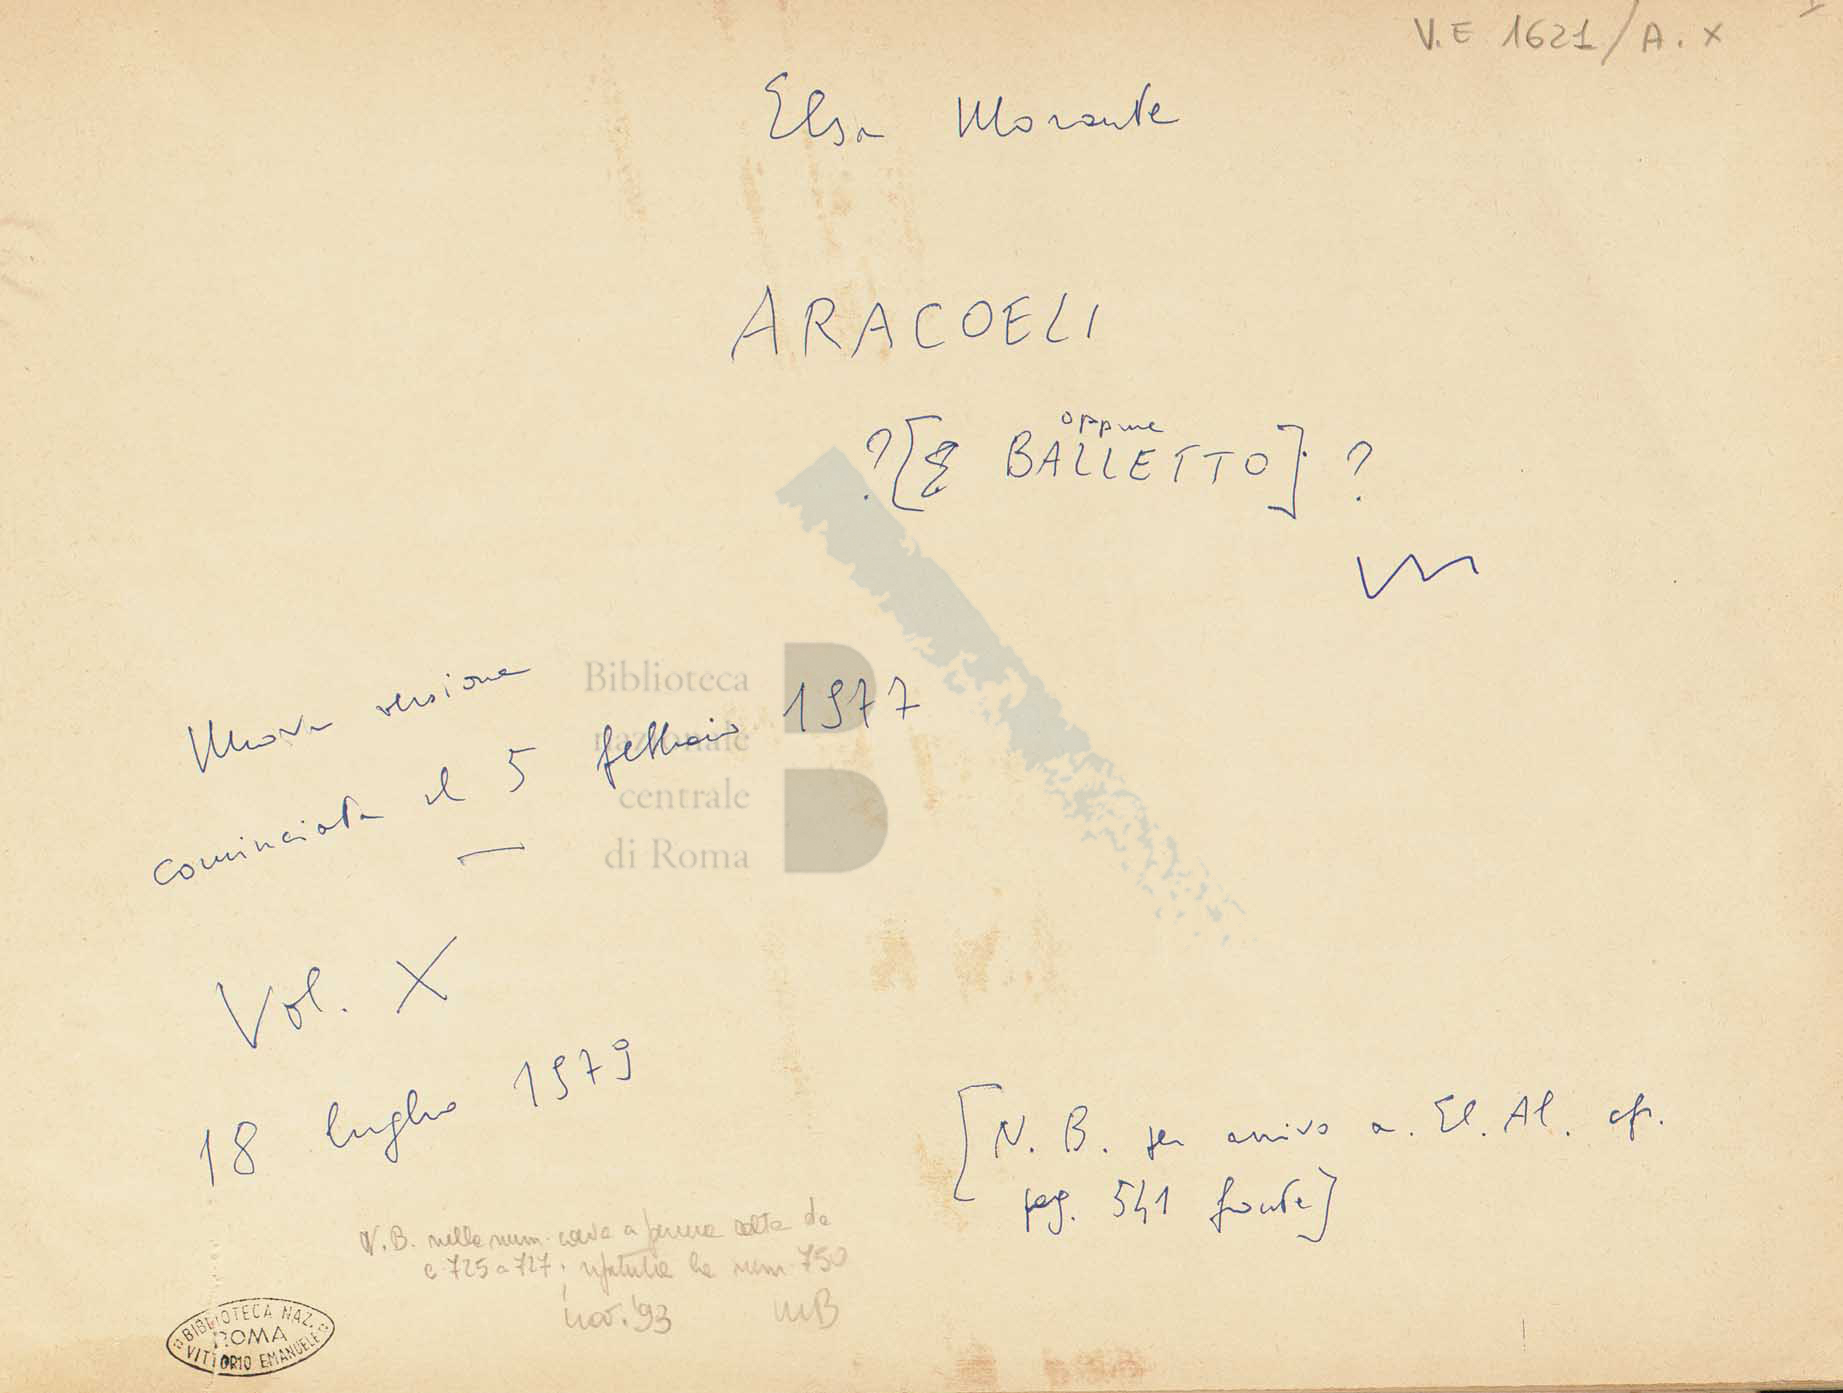 V.E 1621/A.X
Elsa Morante
ARACOELI
oppure
?[& BALLETTO] ?
Nuova versione
cominciata il 5 febbraio 1977
Biblioteca
nazionale
centrale
di Roma
Vol. X
18 luglio 1979
[N. B. per arrivo a. El. Al. cfr.
pag. 541 fronte]
N.B. nella num. a penna salta da
c 725 a 727; la num 750
nov. '93 MB
BIBLIOTECA NAZ.
ROMA
VITTORIO EMANUELE